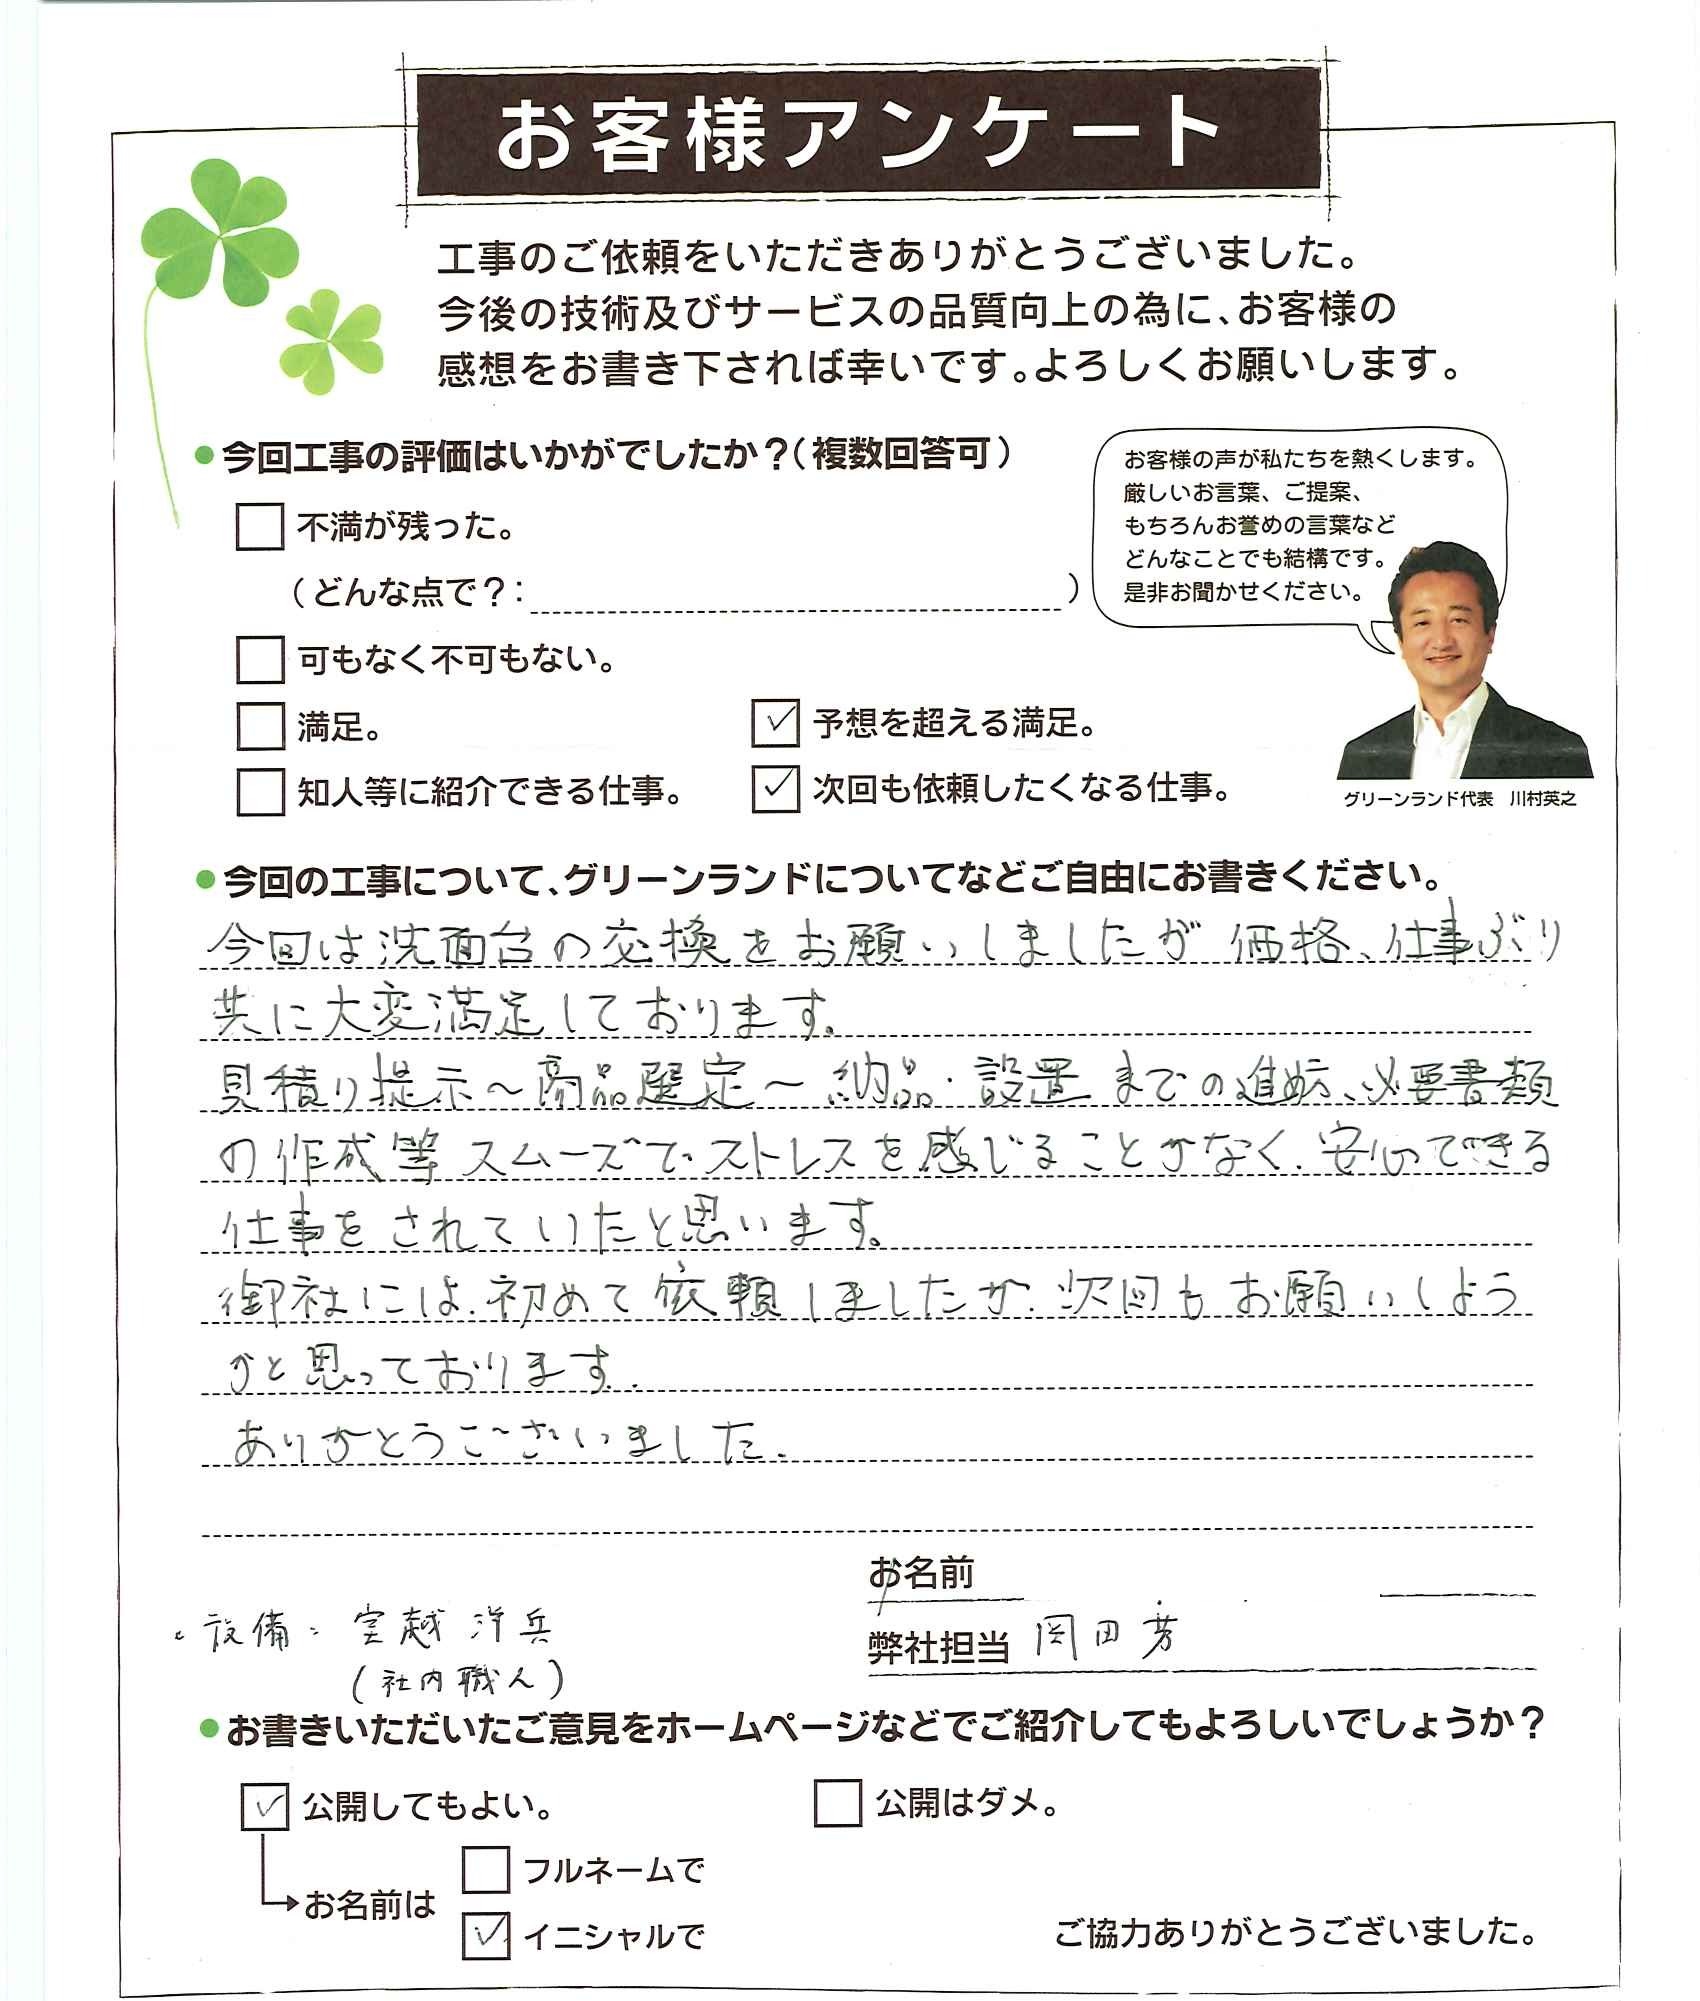 お客様アンケート
工事のご依頼をいただきありがとうございました。
今後の技術及びサービスの品質向上の為に、お客様の
感想をお書き下されば幸いです。よろしくお願いします。
●今回工事の評価はいかがでしたか？（複数回答可）
お客様の声が私たちを熱くします。
厳しいお言葉、ご提案、
もちろんお誉めの言葉など
どんなことでも結構です。
是非お聞かせください。
グリーンランド代表　川村英之
□ 不満が残った。
（どんな点で？：　　　）
□ 可もなく不可もない。
□ 満足。　☑ 予想を超える満足。
□ 知人等に紹介できる仕事。　☑ 次回も依頼したくなる仕事。
●今回の工事について、グリーンランドについてなどご自由にお書きください。
今回は洗面台の交換をお願いしましたが 価格、仕事ぶり
共に大変満足しております。
見積り提示～商品選定～納品・設置までの進転、必要書類
の作成等スムーズで、ストレスを感じることがなく、安心できる
仕事をされていたと思います。
御社には、初めて依頼しましたが、次回もお願いしよう
かと思っております。
ありがとうございました。
お名前
・設備： 室越 洋兵
（社内職人）
弊社担当 岡田 芳
●お書きいただいたご意見をホームページなどでご紹介してもよろしいでしょうか？
☑ 公開してもよい。　□ 公開はダメ。
お名前は
□ フルネームで
☑ イニシャルで
ご協力ありがとうございました。